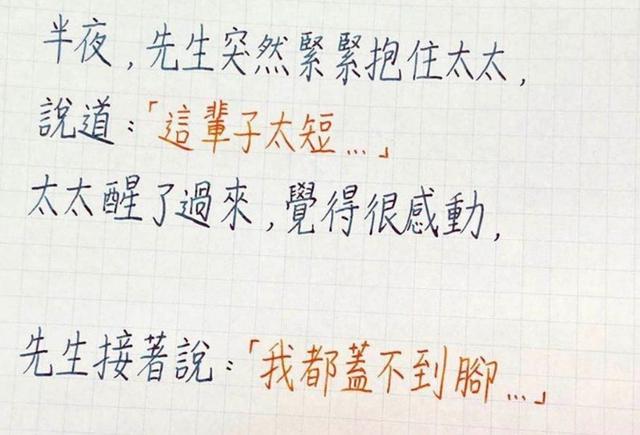 半夜,先生突然緊緊抱住太太,
說道:「這輩子太短...」
太太醒了過來,覺得很感動,
先生接著說:「我都蓋不到腳...」